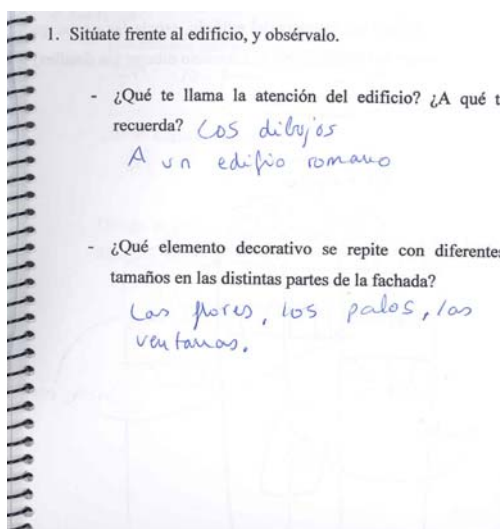 1. Sitúate frente al edificio, y obsérvalo.
- ¿Qué te llama la atención del edificio? ¿A qué t
recuerda? Los dibujos
A un edifio romano
- ¿Qué elemento decorativo se repite con diferentes
tamaños en las distintas partes de la fachada?
Las flores, los palos, las
ventanas.